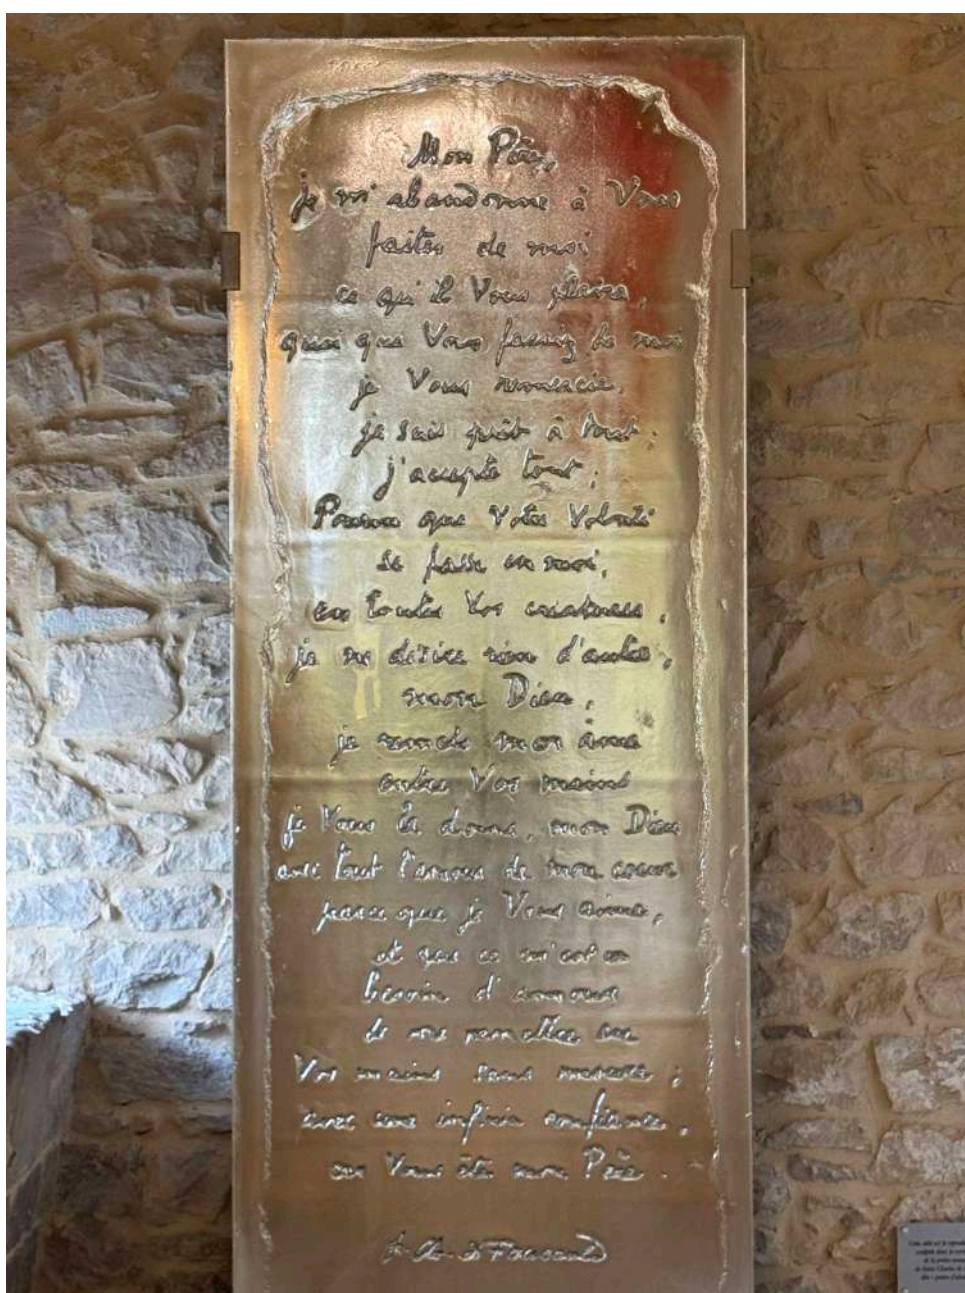 Mon Père,
je m'abandonne à Vous
faites de moi
ce qu'il Vous plaira,
quoi que Vous fassiez de moi
je Vous remercie.
je suis prêt à tout,
j'accepte tout,
Pourvu que Votre Volonté
se fasse en moi,
en toutes Vos créatures,
je ne désire rien d'autre,
mon Dieu,
je remets mon âme
entre Vos mains
je Vous la donne, mon Dieu
avec tout l'amour de mon coeur
parce que je Vous aime,
et que ce m'est un
besoin d'amour
de me remettre en
Vos mains sans mesure,
avec une infinie confiance,
car Vous êtes mon Père.
Ch. de Foucauld
de Saint Charles de